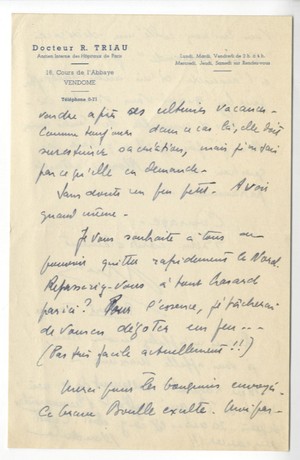 Docteur R. TRIAU
Ancien Interne des Hôpitaux de Paris
18, Cours de l'Abbaye
VENDOME
Téléphone 0-21
Lundi, Mardi, Vendredi de 2 h. à 4 h.
Mercredi, Jeudi, Samedi sur Rendez-vous
vendre après ses ultimes vacances.
Comme toujours dans ce cas là, elle doit
surestimer sa création, mais je ne sais
pas ce qu'elle en demande.
Sans doute un peu petit. À voir
quand même.
Je vous souhaite à tous de
pouvoir quitter rapidement le Nord.
Repasserez-vous à tout hasard
par ici? Pour l'essence, je tâcherai
de vous en dégoter un peu...
(Pas très facile actuellement!!)
Merci pour les bouquins envoyés.
Ce brave Boulle exulte.